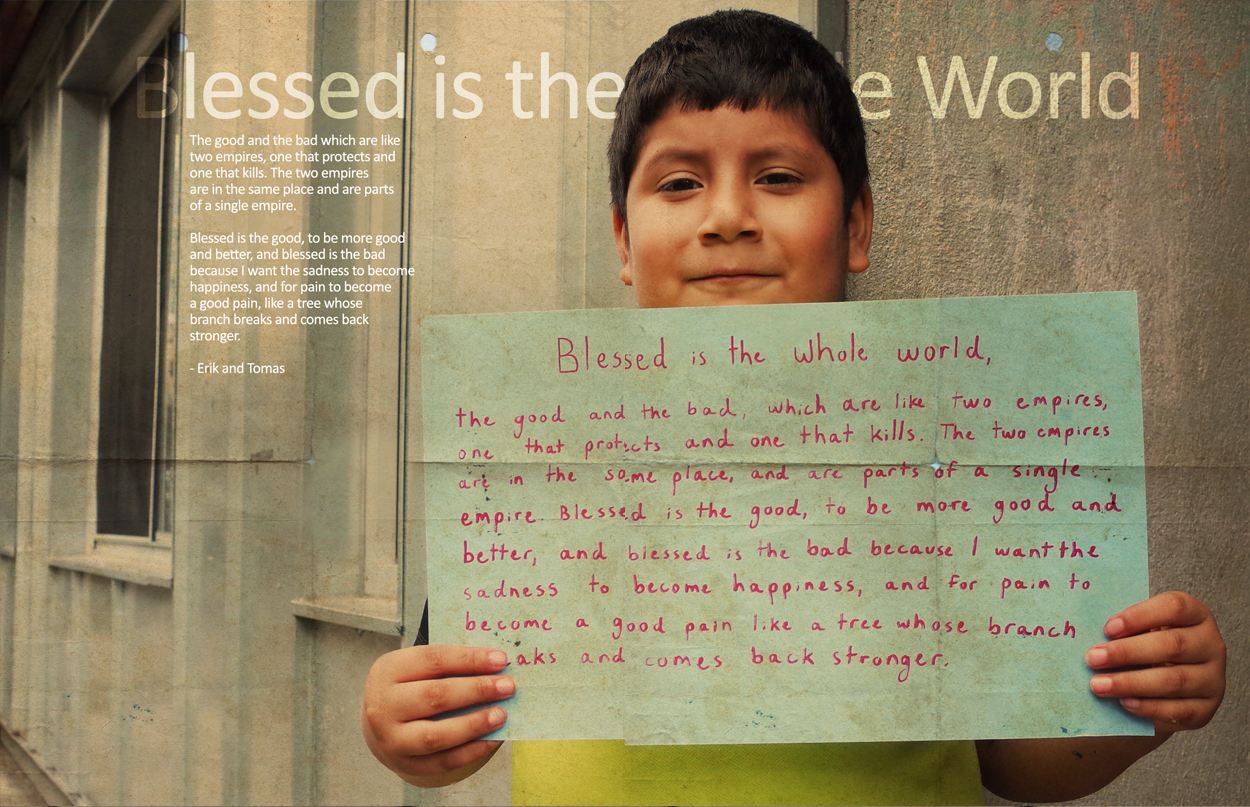 Blessed is the e World
The good and the bad which are like
two empires, one that protects and
one that kills. The two empires
are in the same place and are parts
of a single empire.
Blessed is the good, to be more good
and better, and blessed is the bad
because I want the sadness to become
happiness, and for pain to become
a good pain, like a tree whose
branch breaks and comes back
stronger.
- Erik and Tomas
Blessed is the whole world,
the good and the bad, which are like two empires,
one that protects and one that kills. The two empires
are in the same place, and are parts of a single
empire. Blessed is the good, to be more good and
better, and blessed is the bad because I want the
sadness to become happiness, and for pain to
become a good pain like a tree whose branch
aks and comes back stronger.